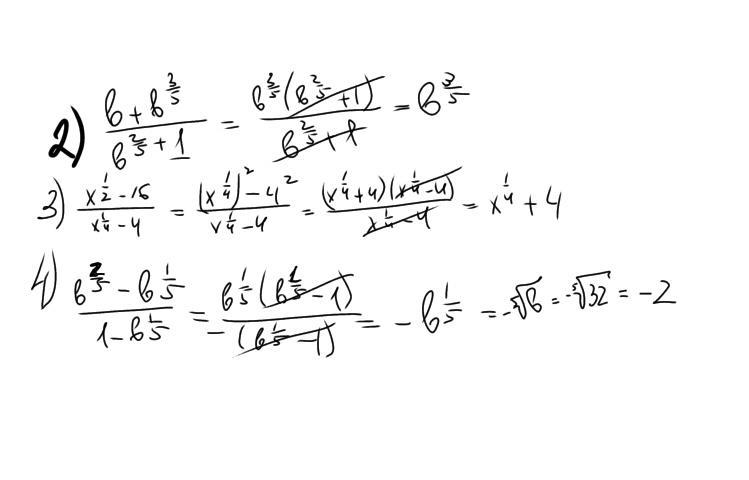 2) \frac{b+b^{\frac{3}{5}}}{b^{\frac{2}{5}}+1} = \frac{b^{\frac{3}{5}}(b^{\frac{2}{5}}+1)}{b^{\frac{2}{5}}+1} = b^{\frac{3}{5}}
3) \frac{x^{\frac{1}{2}}-16}{x^{\frac{1}{4}}-4} = \frac{(x^{\frac{1}{4}})^2-4^2}{x^{\frac{1}{4}}-4} = \frac{(x^{\frac{1}{4}}+4)(x^{\frac{1}{4}}-4)}{x^{\frac{1}{4}}-4} = x^{\frac{1}{4}}+4
4) \frac{b^{\frac{2}{5}}-b^{\frac{1}{5}}}{1-b^{\frac{1}{5}}} = \frac{b^{\frac{1}{5}}(b^{\frac{1}{5}}-1)}{-(b^{\frac{1}{5}}-1)} = -b^{\frac{1}{5}} = -\sqrt[5]{b} = -\sqrt[5]{32} = -2